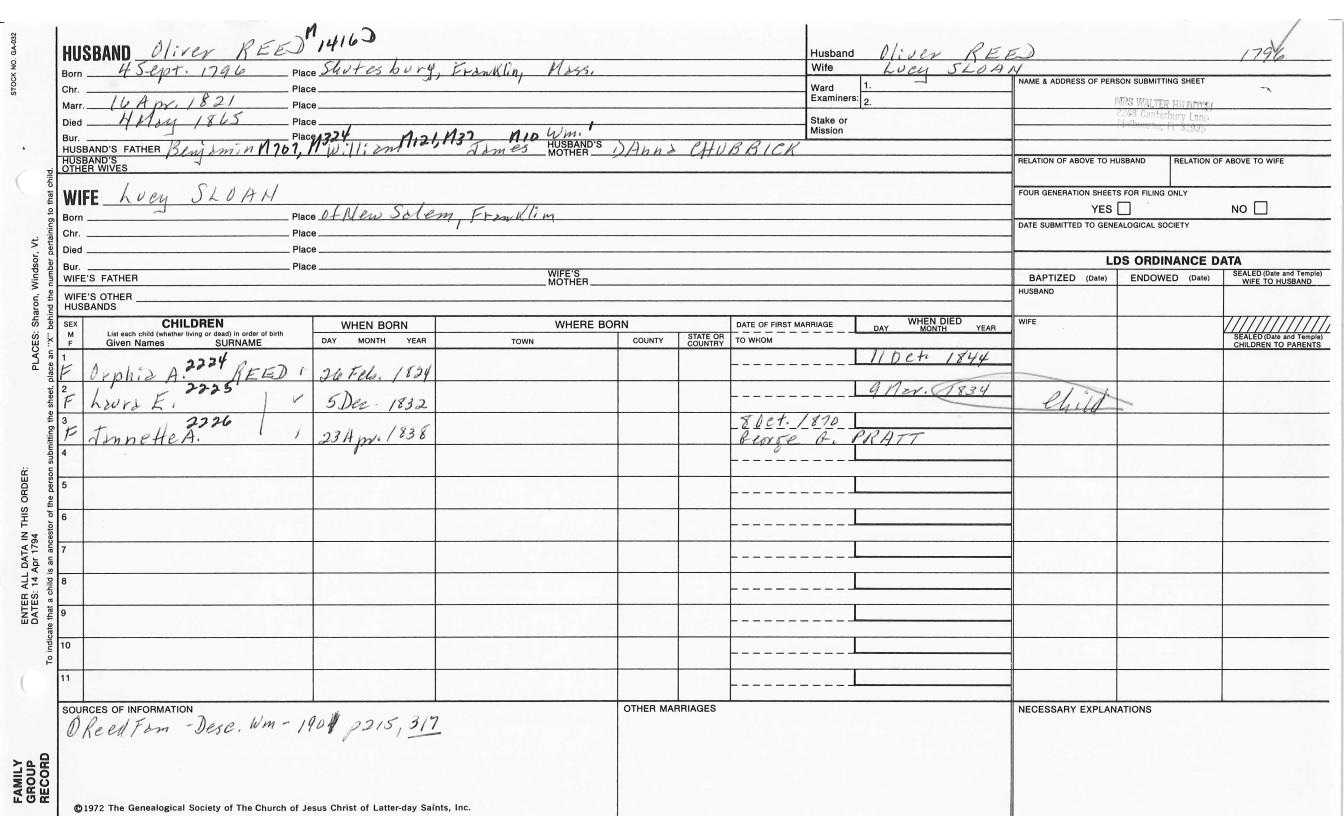 STOCK NO. GA-032
HUSBAND Oliver REED M 1416D
Born 4 Sept. 1796 Place Shutesbury, Franklin, Mass.
Chr. Place
Marr. 16 Apr. 1821 Place
Died 4 May 1865 Place
Bur. Place
HUSBAND'S FATHER Benjamin M707, M324 William M121, M37 James M10 Wm. 1 HUSBAND'S MOTHER Anna CHUBRICK
HUSBAND'S OTHER WIVES
WIFE Lucy SLOAN
Born Place of New Salem, Franklin
Chr. Place
Died Place
Bur. Place
WIFE'S FATHER WIFE'S MOTHER
WIFE'S OTHER HUSBANDS
Husband Oliver REED 1796
Wife Lucy SLOAN
Ward Examiners: 1.
2.
Stake or Mission
NAME & ADDRESS OF PERSON SUBMITTING SHEET
MRS WALTER
RELATION OF ABOVE TO HUSBAND RELATION OF ABOVE TO WIFE
FOUR GENERATION SHEETS FOR FILING ONLY
YES NO
DATE SUBMITTED TO GENEALOGICAL SOCIETY
LDS ORDINANCE DATA
BAPTIZED (Date) ENDOWED (Date) SEALED (Date and Temple) WIFE TO HUSBAND
HUSBAND
WIFE
SEALED (Date and Temple) CHILDREN TO PARENTS
SEX M F
CHILDREN
List each child (whether living or dead) in order of birth
Given Names SURNAME
WHEN BORN
DAY MONTH YEAR
WHERE BORN
TOWN COUNTY STATE OR COUNTRY
DATE OF FIRST MARRIAGE
TO WHOM
WHEN DIED
DAY MONTH YEAR
1 F Orphia A. 2224 REED 26 Feb. 1824 11 Oct. 1844
2 F Laura E. 2225 5 Dec. 1832 9 Mar. 1834 Child
3 F Jannette A. 2226 23 Apr. 1838 8 Oct. 1870
George A. PRATT
4
5
6
7
8
9
10
11
SOURCES OF INFORMATION
① Reed Fam - Desc. Wm - 1901 p215, 317
OTHER MARRIAGES
NECESSARY EXPLANATIONS
©1972 The Genealogical Society of The Church of Jesus Christ of Latter-day Saints, Inc.
FAMILY GROUP RECORD
ENTER ALL DATA IN THIS ORDER:
DATES: 14 Apr 1794
PLACES: Sharon, Windsor, Vt.
To indicate that a child is an ancestor of the person submitting the sheet, place an "X" behind the number pertaining to that child.